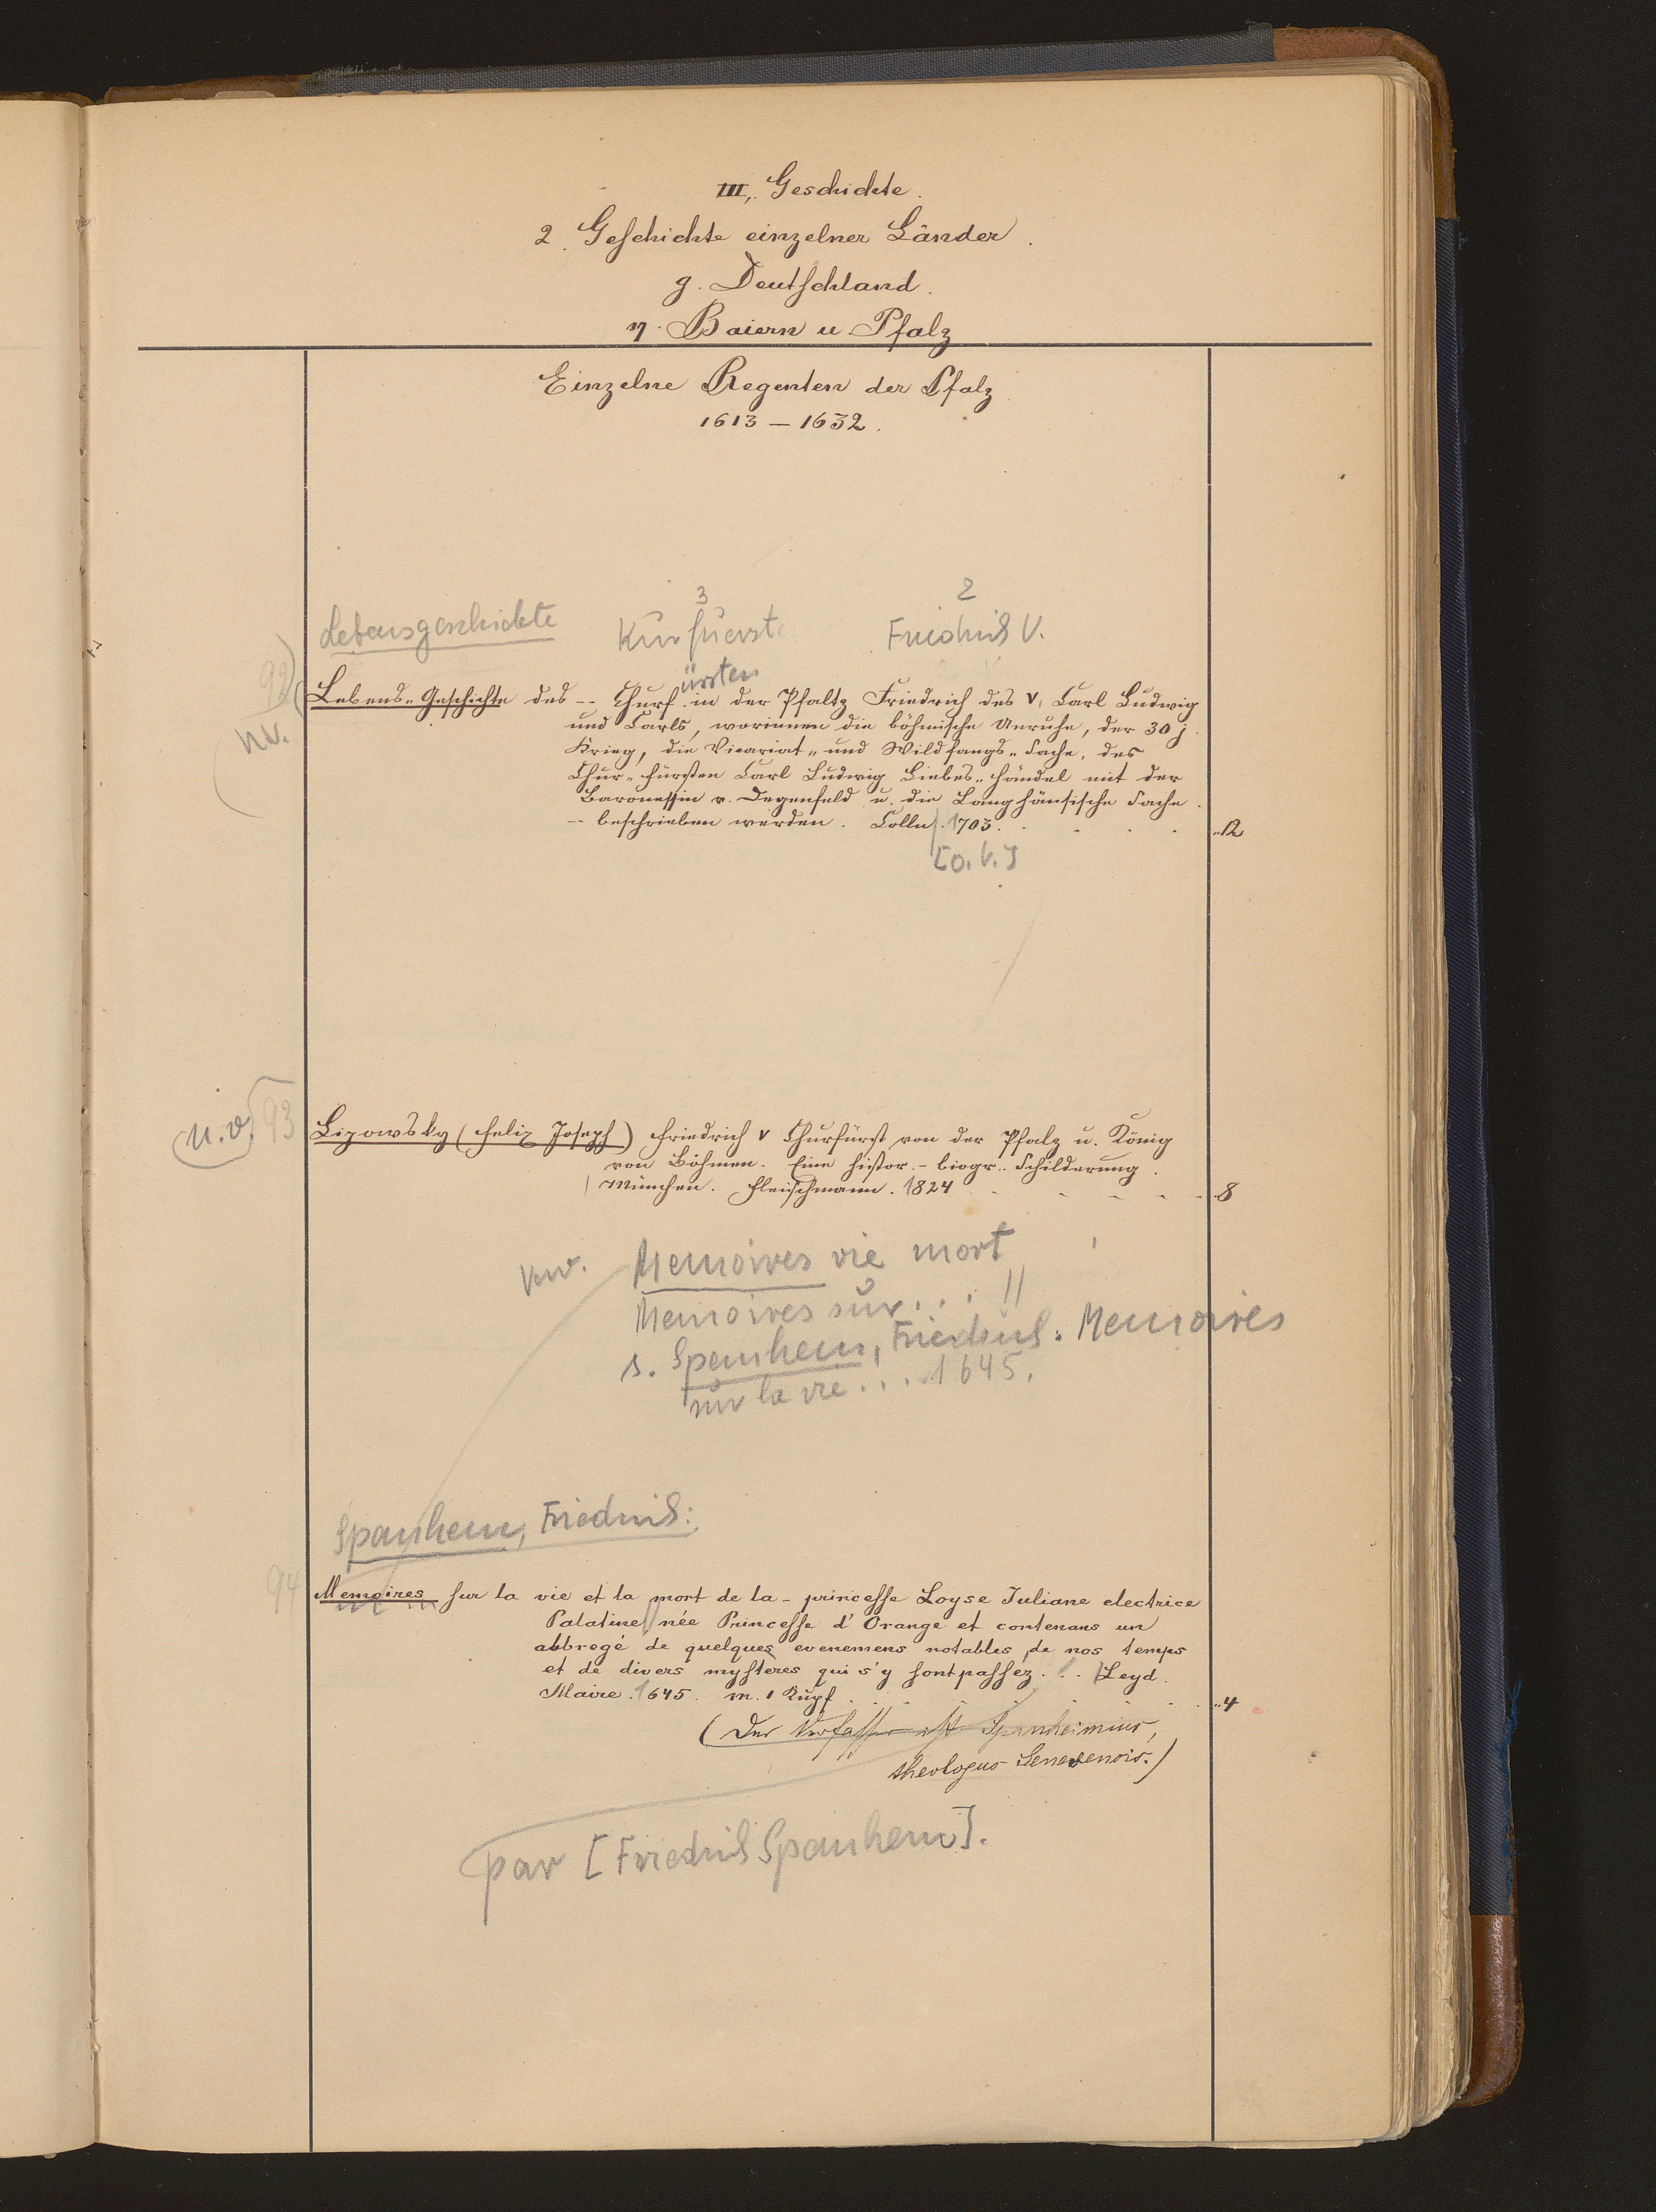 III, Geschichte.
2. Geschichte einzelner Länder.
g. Deutschland.
η. Baiern u. Pfalz
Einzelne Regenten der Pfalz.
1613 – 1632.
3 2
Lebensgeschichte Kurfuerst Friedrich V.
ürsten
92
Lebens-Geschichte des -- Churf. in der Pfaltz Friedrich des V, Carl Ludwig
n.v.
und Carls, worinnen die böhmische Unruhe, der 30 j.
Krieg, die Vicariat- und Wildfangs-Sache, des
Chur-Fürsten Carl Ludwig Liebes-Händel mit der
Baronessin v. Degenfeld u. die Langhänsische Sache
-- beschrieben werden. Cölln. 1703. ..12
[o. V.]
(n.v.) 93 Lipowsky (Felix Joseph) Friedrich V Churfürst von der Pfalz u. König
von Böhmen. Eine histor.-biogr.. Schilderung.
München. Fleischmann. 1824 .8
Verw. Memoires vie mort
Memoires sur... !!
s. Spanhem, Friedrich: Memoires
sur la vie... 1645.
Spanhem, Friedrich:
94 Memoires sur la vie et la mort de la - princesse Loyse Juliane electrice
Palatine née Princesse d'Orange et contenans un
abbregé de quelques evenemens notables de nos temps
et de divers mysteres qui s'y sont passez... Leyd.
Maire. 1645. m. 1 Kupf. ..4
(Der Verfasser ist Spanheimius,
theologus Genevensis.)
par [Friedrich Spanhem].